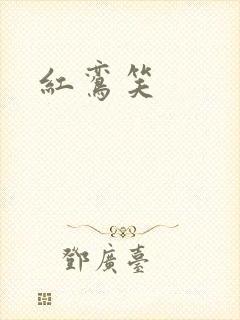 紅鸞笑
鄧廣臺